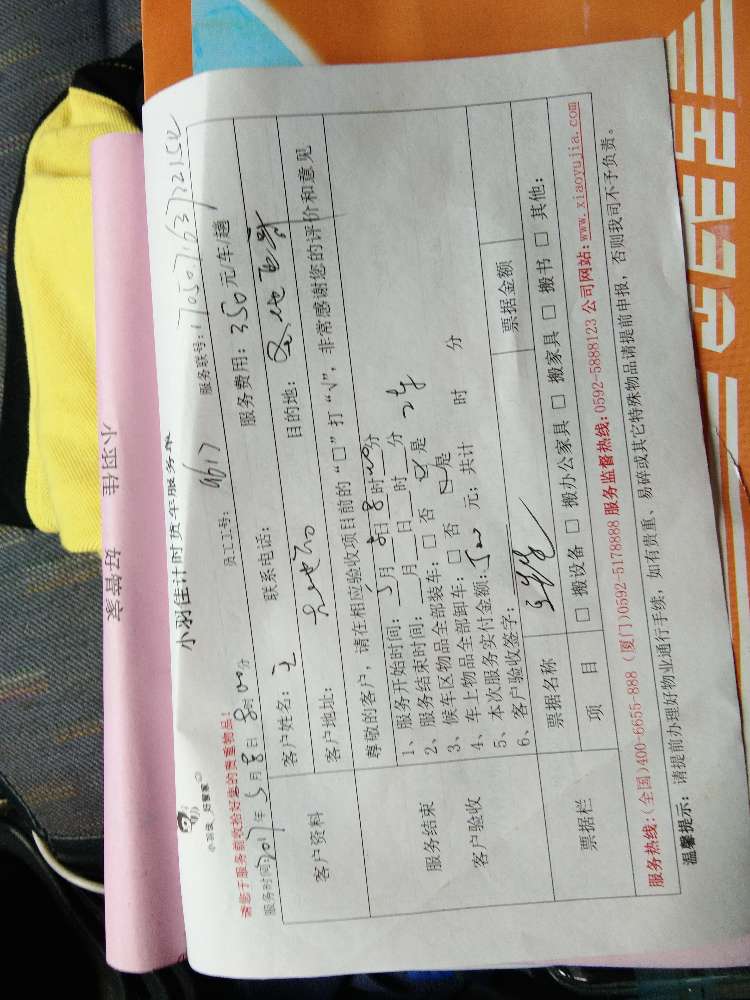 小羽佳 好管家
小羽佳 好管家
小羽佳计时货车服务单
请您于服务前收拾好您的贵重物品!
服务联号:
服务时间:2017年5月8日8时00分
员工工号: 9617
服务费用: 350元/车/趟
客户资料
客户姓名: 王
联系电话:
客户地址:
目的地:
尊敬的客户, 请在相应验收项目前的“□”打“√”, 非常感谢您的评价和意见
服务结束
客户验收
1、服务开始时间: 5月8日8时00分
2、服务结束时间: 月 日 时 分
3、候车区物品全部装车: □ 否 ☑ 是 2车
4、车上物品全部卸车: □ 否 ☑ 是
5、本次服务实付金额: 元; 共计 时 分
6、客户验收签字:
票据栏
票据名称
票据金额
项 目
□ 搬设备 □ 搬办公家具 □ 搬家具 □ 搬书 □ 其他:
服务热线:(全国)400-6655-888 (厦门)0592-5178888 服务监督热线:0592-5888123 公司网站:www.xiaoyujia.com
温馨提示: 请提前办理好物业通行手续, 如有贵重、易碎或其它特殊物品请提前申报, 否则我司不予负责。